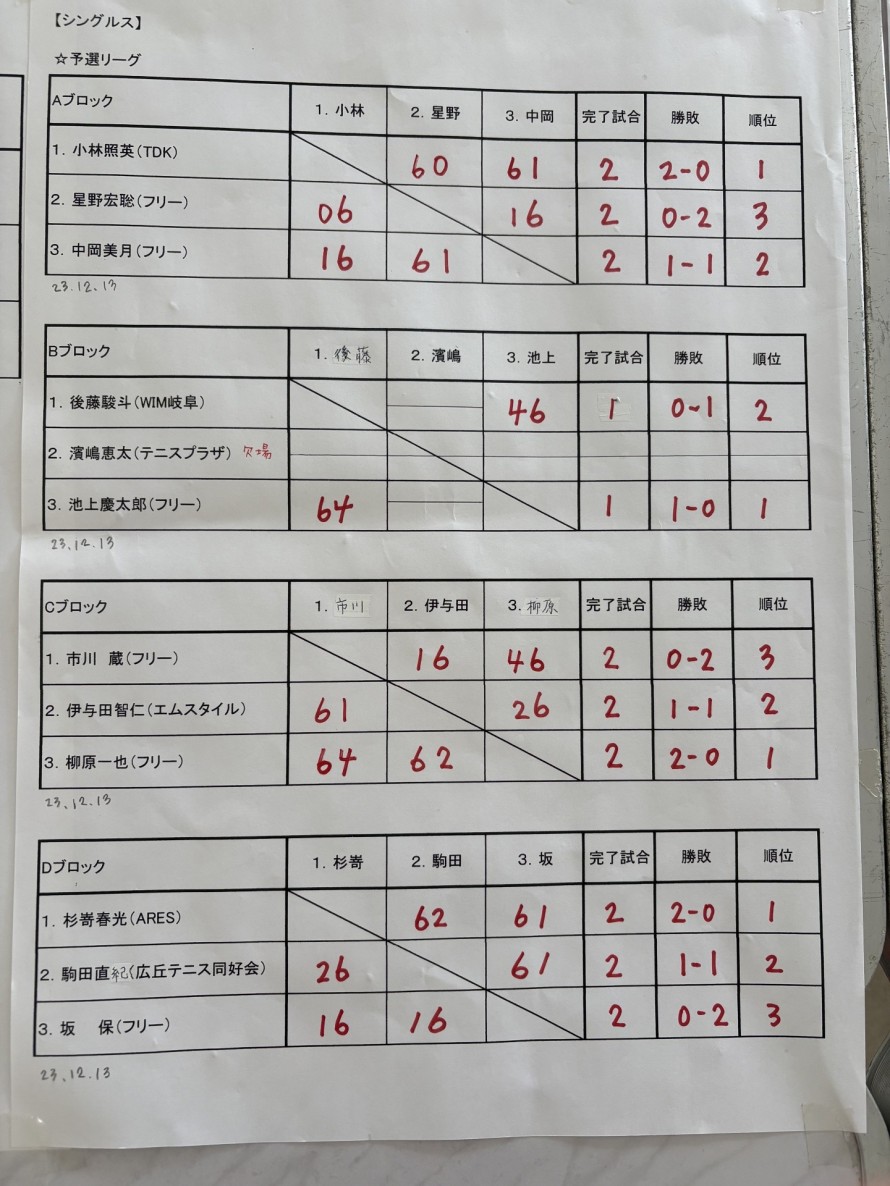 【シングルス】
☆予選リーグ
Aブロック 1. 小林 2. 星野 3. 中岡 完了試合 勝敗 順位
1. 小林照英(TDK) 60 61 2 2-0 1
2. 星野宏聡(フリー) 06 16 2 0-2 3
3. 中岡美月(フリー) 16 61 2 1-1 2
23.12.13
Bブロック 1. 後藤 2. 濱嶋 3. 池上 完了試合 勝敗 順位
1. 後藤駿斗(WIM岐阜) 46 1 0-1 2
2. 濱嶋恵太(テニスプラザ) 欠場
3. 池上慶太郎(フリー) 64 1 1-0 1
23.12.13
Cブロック 1. 市川 2. 伊与田 3. 柳原 完了試合 勝敗 順位
1. 市川 蔵(フリー) 16 46 2 0-2 3
2. 伊与田智仁(エムスタイル) 61 26 2 1-1 2
3. 柳原一也(フリー) 64 62 2 2-0 1
23.12.13
Dブロック 1. 杉嵜 2. 駒田 3. 坂 完了試合 勝敗 順位
1. 杉嵜春光(ARES) 62 61 2 2-0 1
2. 駒田直紀(広丘テニス同好会) 26 61 2 1-1 2
3. 坂 保(フリー) 16 16 2 0-2 3
23.12.13